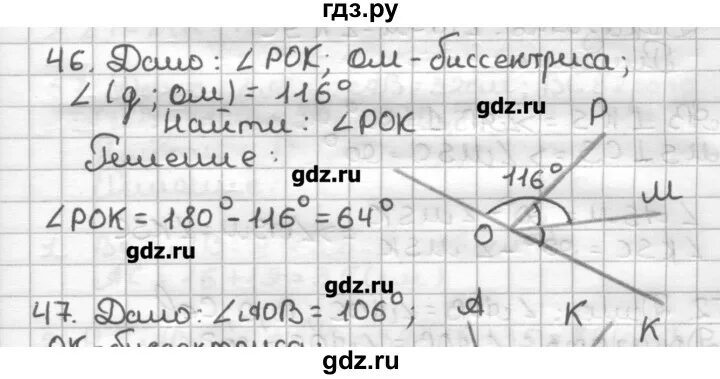 гдз.ру
46. Дано: ∠POK; ОМ - биссектриса;
∠(g; ОМ) = 116°
gdz.ru
Найти: ∠POK
P
Решение:
gdz.ru
116°
M
∠POK = 180° - 116° = 64°
O
gdz.ru
gdz.ru
47. Дано: ∠AOB = 106°;
A
K
K
OK - биссектриса;
gdz.ru